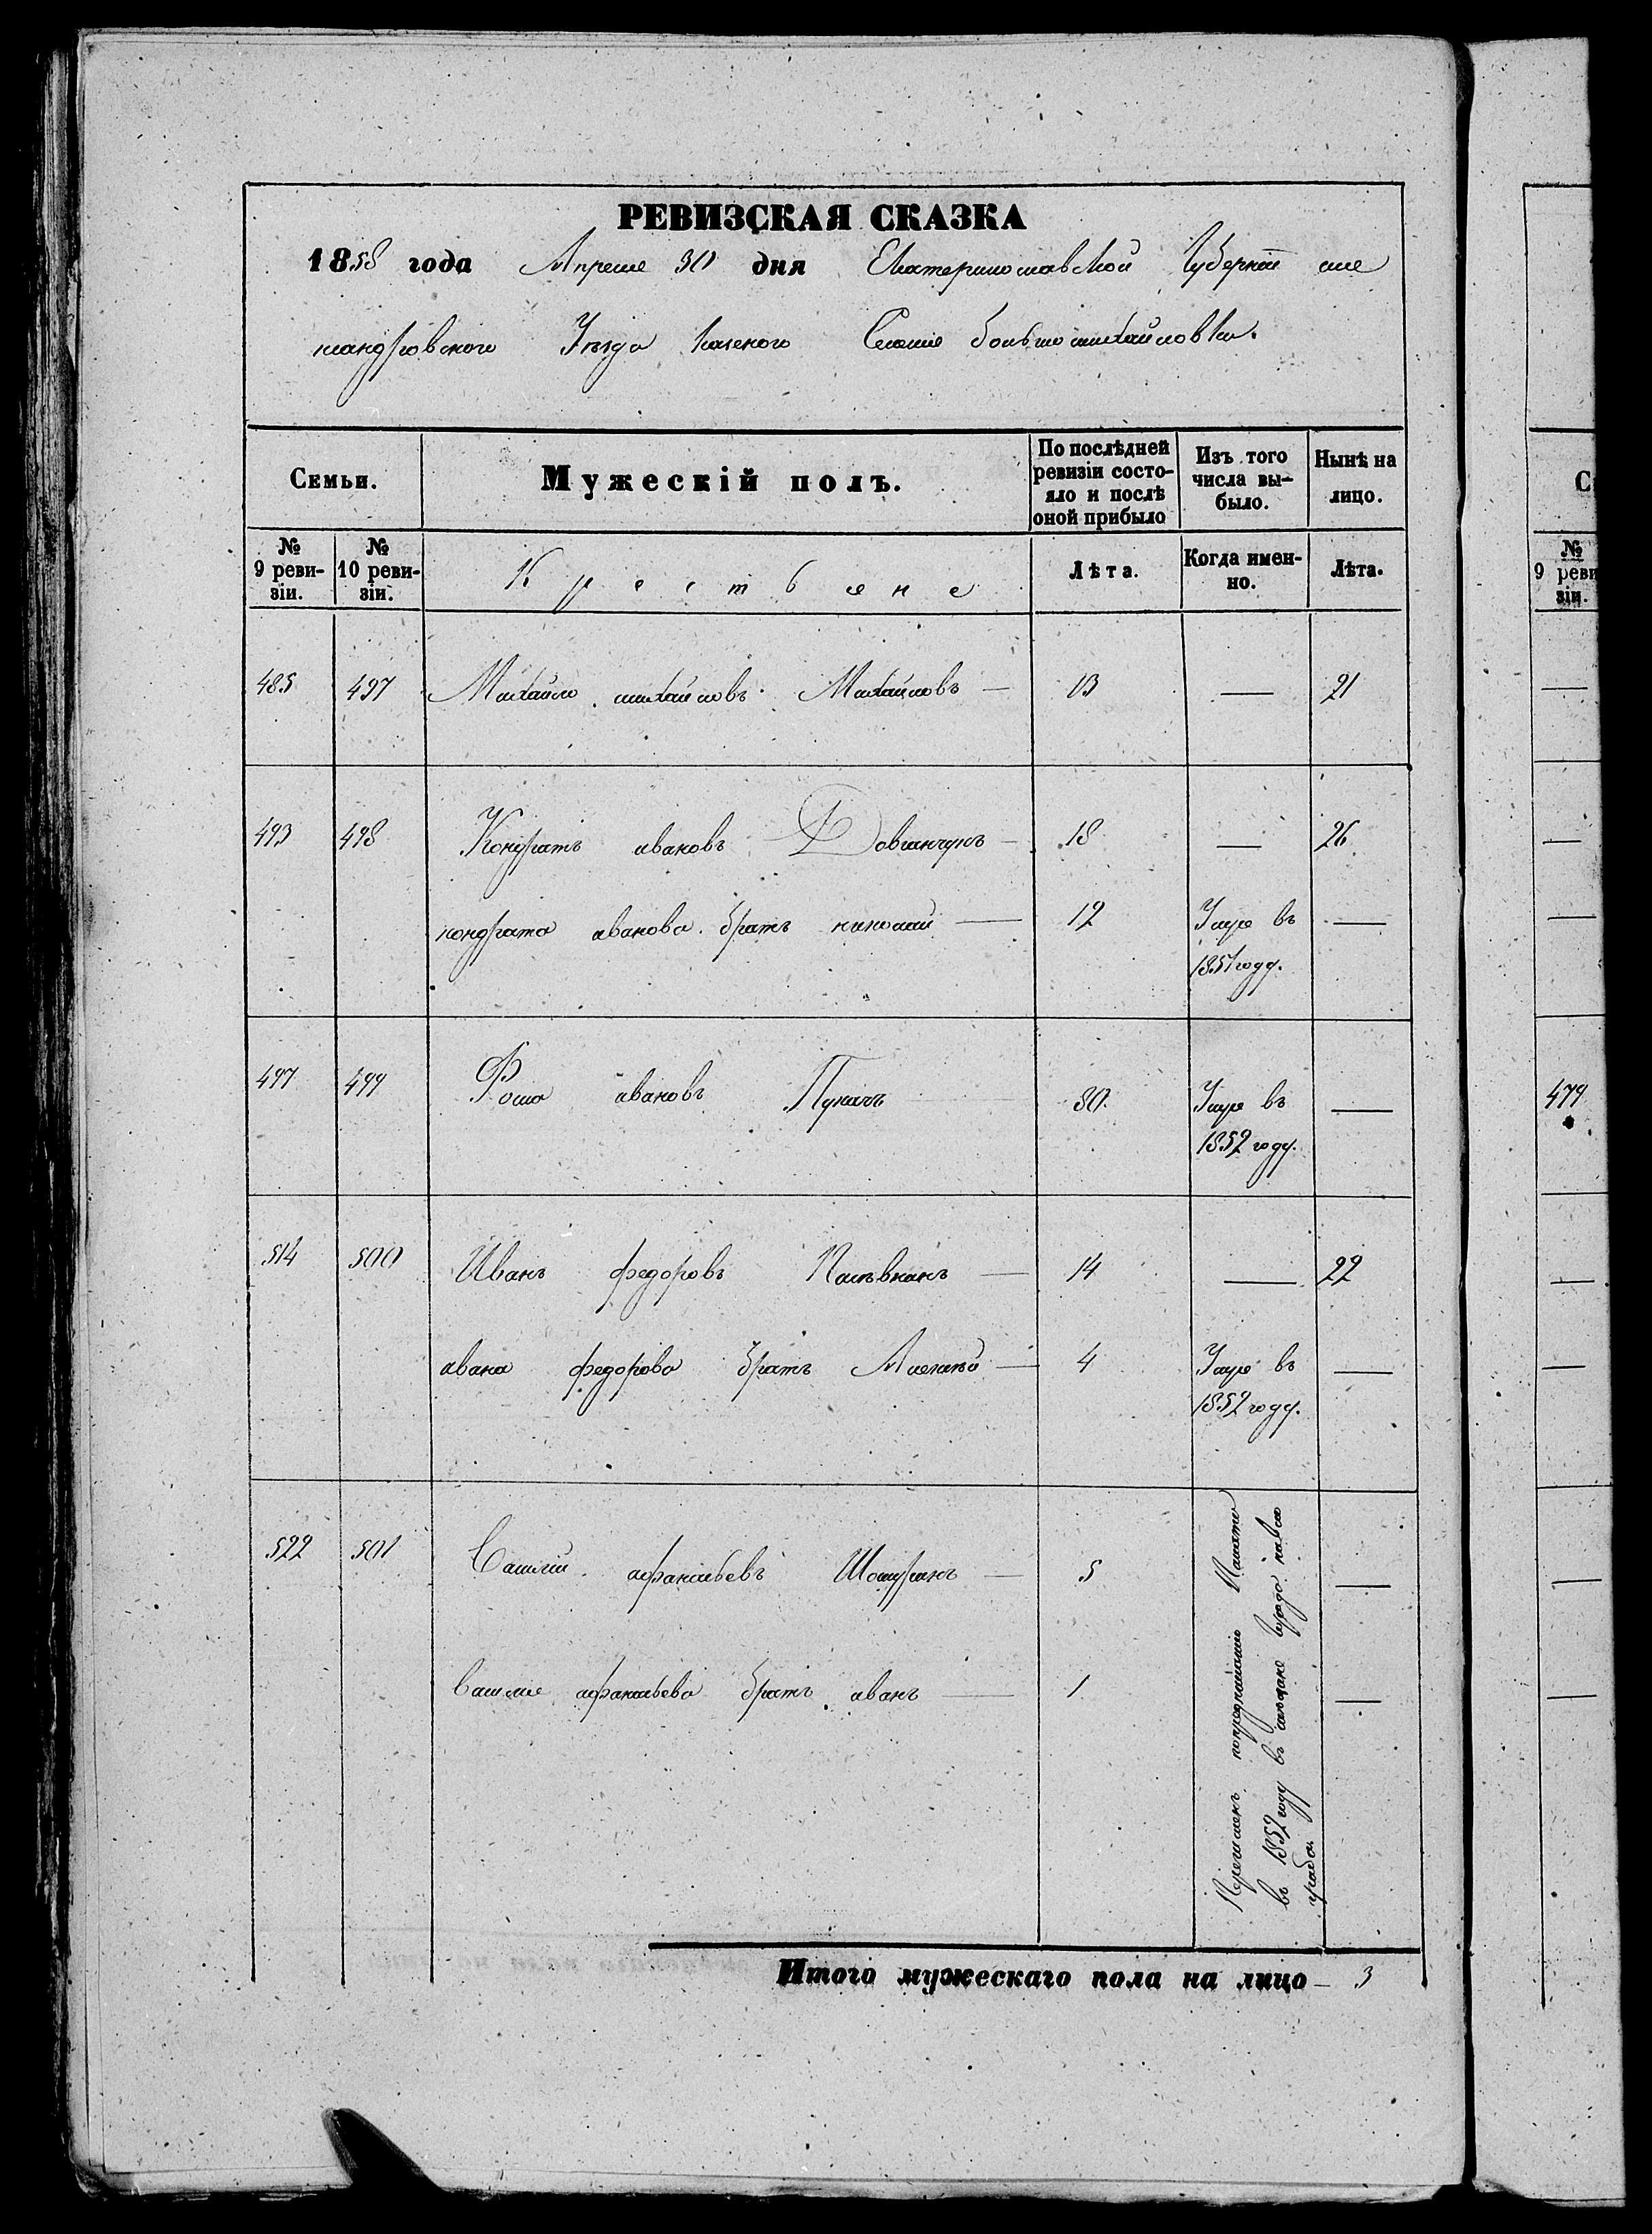 РЕВИЗСКАЯ СКАЗКА
1858 года Апреля 30 дня Екатеринославской Губернии але
ксандровского Уезда казеного Селения большомихайловки.
Семьи.
Мужескій полъ.
По послѣдней ревизіи состояло и послѣ оной прибыло
Изъ того числа выбыло.
Нынѣ на лицо.
№ 9 ревизіи.
№ 10 ревизіи.
Крестьяне
Лѣта.
Когда именно.
Лѣта.
485 497 Михайло михайловъ Михайловъ — 13 — 21
493 498 Кондратъ ивановъ Довганчукъ — 18 — 26
кондрата иванова братъ николай — 12 Умре въ —
1851 году.
497 499 Фома ивановъ Пугачъ 80 Умре въ —
1852 году.
514 500 Иванъ федоровъ — 14 — 22
ивана федорова братъ Алексѣй — 4 Умре въ —
1852 году.
522 501 Василий афанасьевъ — 5 —
василия афанасьева братъ иванъ — 1 —
въ 1852 году въ города павло
града
Итого мужескаго пола на лицо — 3
С
№
9 реви
зіи.
479